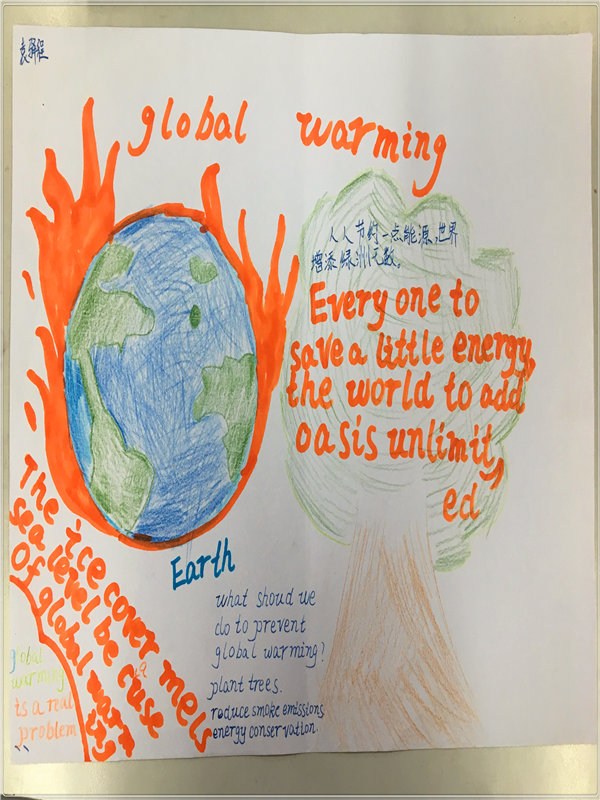 global warming
人人节约一点能源,世界
增添绿洲无数。
Every one to
save a little energy,
the world to add
oasis unlimit,
ed
Earth
The ice cover mels
sea level be cause
Of global warm
ing
what shoud we
do to prevent
global warming?
plant trees.
reduce smoke emissions
energy conservation.
global
warming
ts a real
problem